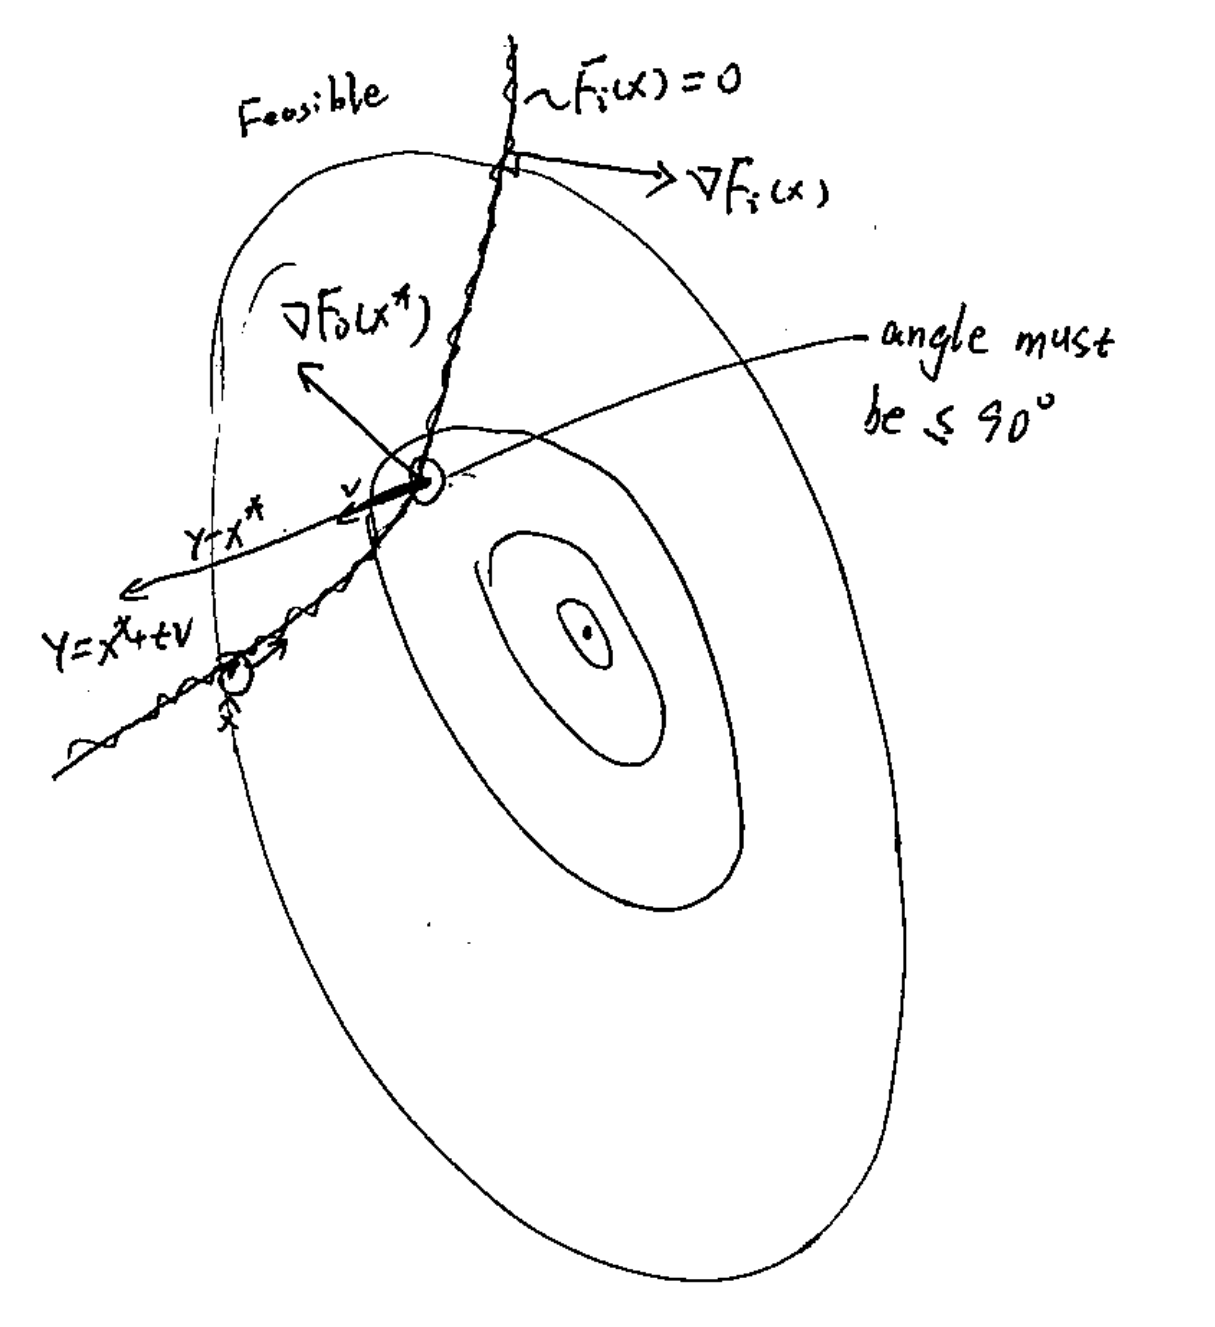 Feasible
~F_i(x) = 0
∇F_i(x)
∇F_0(x*)
angle must
be ≤ 90°
v
y-x*
y=x*+tv
x